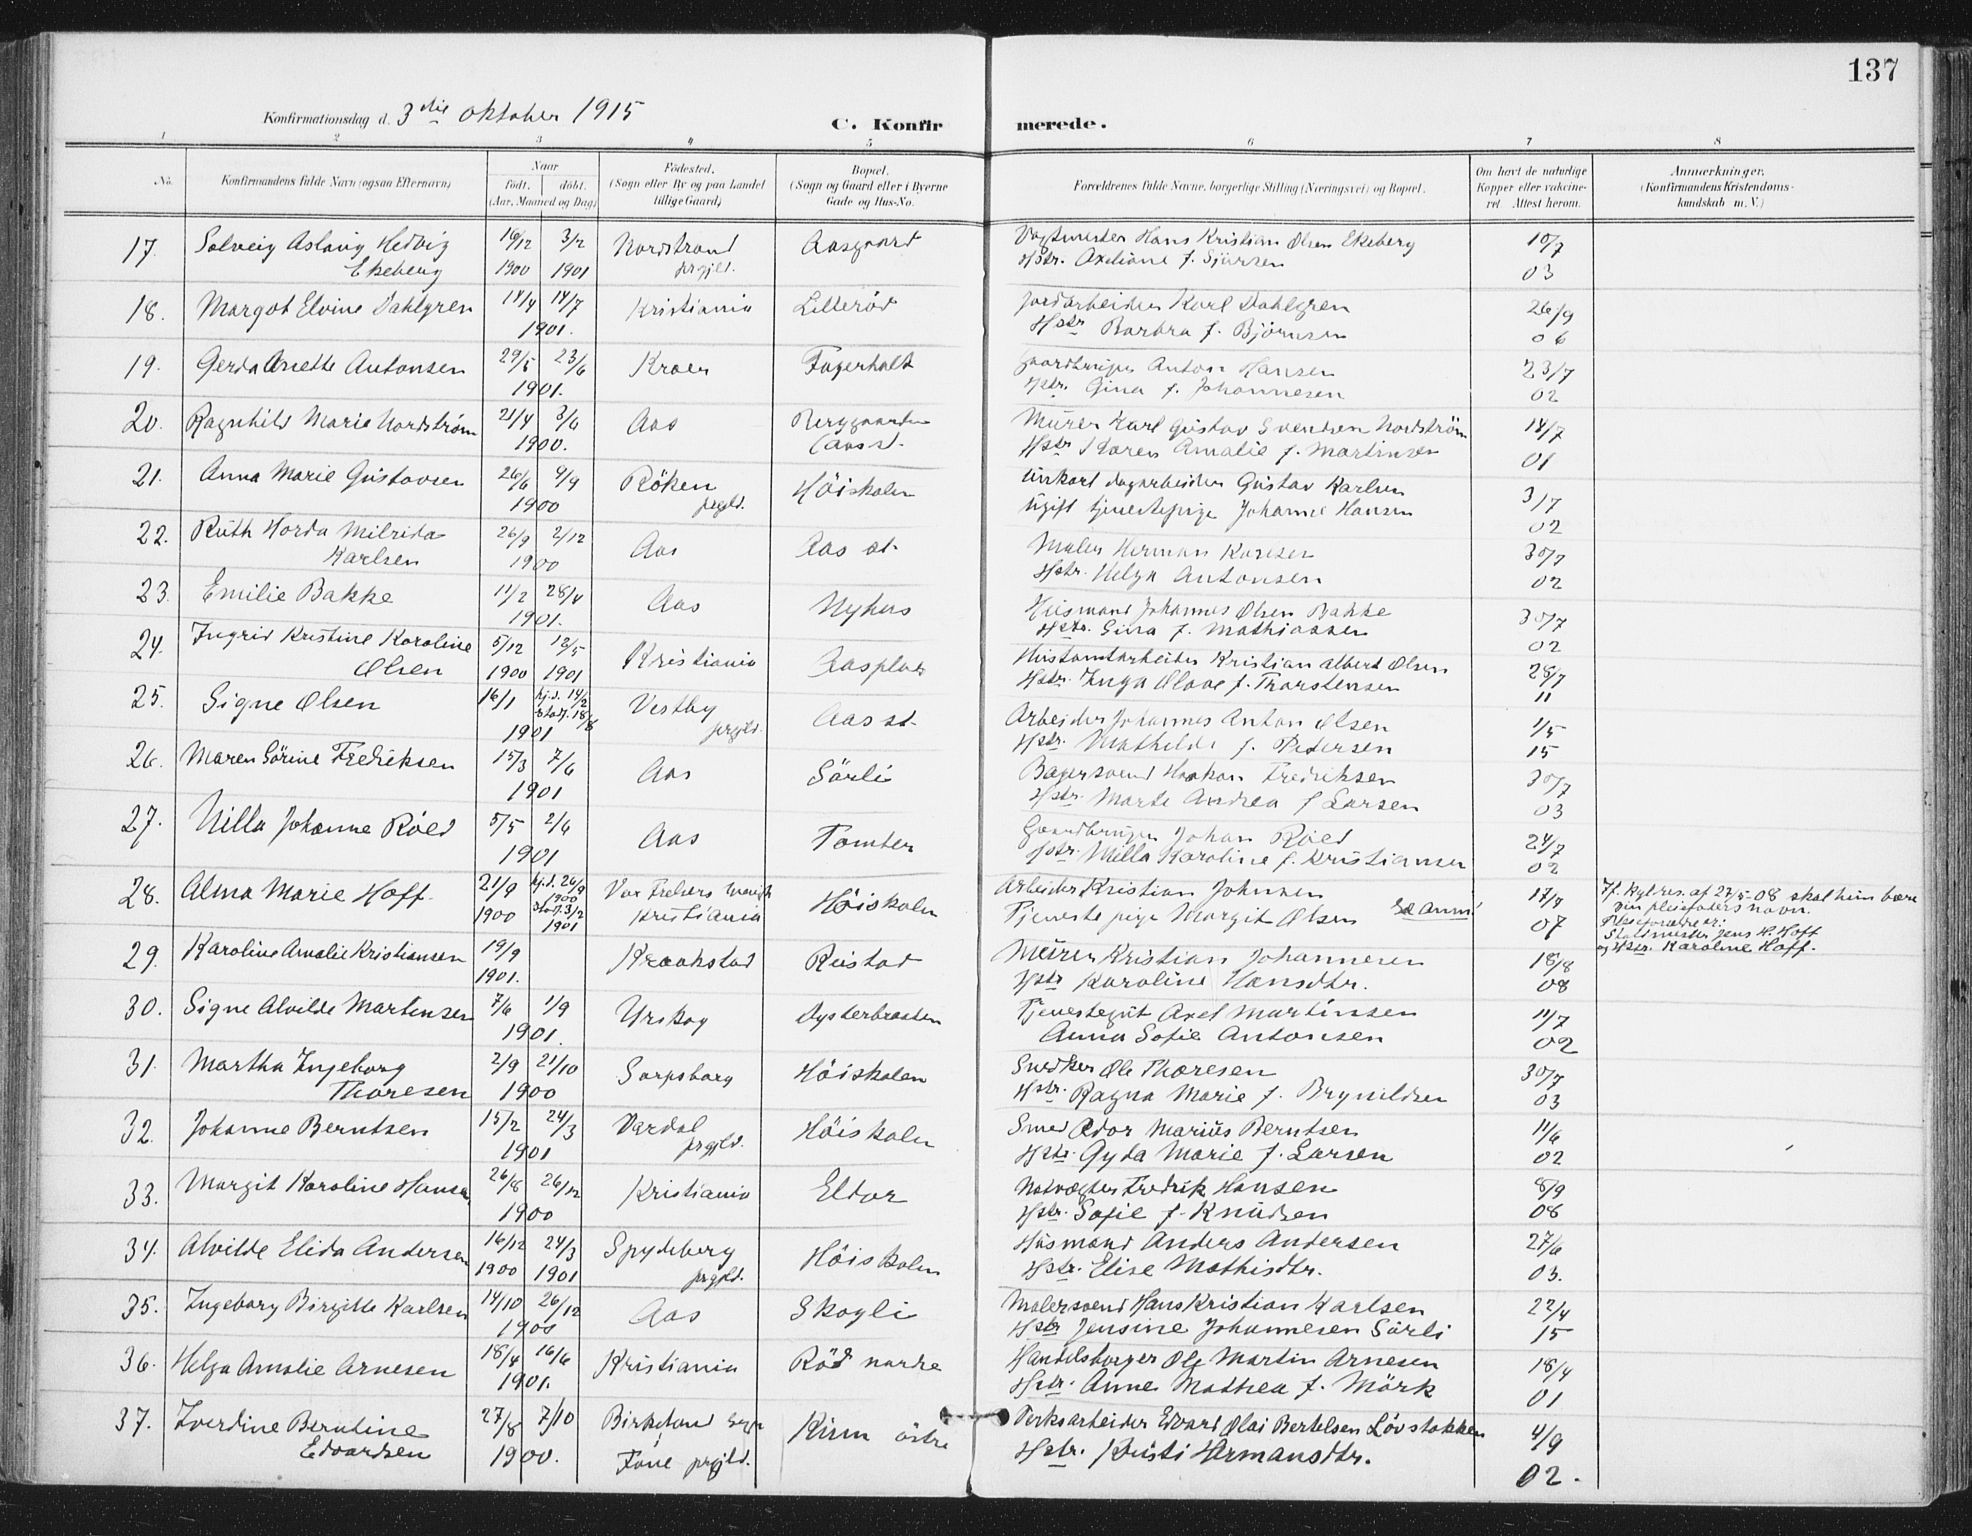 137
Konfirmationsdag d. 3die oktober 1915
C. Konfirmerede.
1 2 3 4 5 6 7 8
No. Konfirmandens fulde Navn (ogsaa Efternavn) Naar født. døbt. (Aar, Maaned og Dag) Fødested. (Sogn eller By og paa Landet tillige Gaard) Bopæl. (Sogn og Gaard eller i Byerne Gade og Hus-No. Forældrenes fulde Navne, borgerlige Stilling (Næringsvei) og Bopæl. Om havt de naturlige Kopper eller vakcineret Attest herom. Anmærkninger. (Konfirmandens Kristendomskundskab m. V.)
17. Solveig Aslaug Hedvig 16/12 3/2 Nordstrand Aasgaard Vagtmester Hans Kristian Olsen Ekeberg 10/7
Ekeberg 1900 1901 prgjld. Hstr. Axeliane f. Sjursen 03
18. Margot Elvine Dahlgren 14/4 14/7 Kristiania Lillerød Jordarbeider Karl Dahlgren 26/9
1901. Hstr Barbra f. Bjørnsen 06
19. Gerda Anette Antonsen 29/5 23/6 Kroer Fagerholt Gaardbruger Anton Hansen 23/7
1901. Hstr. Gina f. Johannesen 02
20. Ragnhild Marie Nordstrøm 21/4 3/6 Aas Berggaarden Murer Karl Gustav Svendsen Nordström 14/7
1900. (Aas st. Hstr Karen Amalie f. Martinsen 01
21. Anna Marie Gustavsen 26/6 9/9 Röken Höiskolen Unkarl dagarbeider Gustav Karlsen 3/7
1900 prgjld. Ugift tjenestepige Johanne Hansen 02
22. Ruth Horda Milrida 26/9 2/12 Aas Aas st. Maler Herman Karlsen 30/7
Karlsen 1900 Hstr. Helga Antonsen 02
23. Emilie Bakke 11/2 28/4 Aas Nyhus Husmand Johannes Olsen Bakke 30/7
1901. Hstr. Gina f. Mathiassen 02
24. Ingrid Kristine Karoline 5/12 12/5 Kristiania Aasplas Kristian Albert Olsen 28/7
Olsen 1900 1901 Hstr. Inga Olave f. Thorstensen 11
25. Signe Olsen 16/1 hj.d. 14/2 Vestby Aas st. Arbeider Johannes Anton Olsen 1/5
1901 stadf. 18/8 prgjld. Hstr. Mathilde f. Pedersen 15
26. Maren Sörine Fredriksen 15/3 7/6 Aas Sörli Bagersvend Haakon Fredriksen 30/7
1901 Hstr. Marte Andrea f Larsen 03
27. Milla Johanne Röed 5/5 2/6 Aas Tomter Gaardbruger Johan Röed 24/7
1901 Hstr. Milla Karoline f. Kristiansen 02
28. Alma Marie Hoff. 21/9 hj.d. 26/9 1900 Vor Frelsers menigh Höiskolen Arbeider Kristian Johnsen 17/7 If. kgl. res. af 27/5-08 skal hun bære
1900 stadf. 3/2 1901 Kristiania Tjenestepige Margit Olsen 07 sin pleiefaders navn.
Pleieforældre er:
Staldmester Jens H. Hoff
og Hstr. Karoline Hoff.
29. Karoline Amalie Kristiansen 19/9 Kraakstad Rustad Murer Kristian Johannesen 18/8
1901. Hstr Karoline Hansdtr. 08
30. Signe Alvilde Martinsen 7/6 1/9 Urskog Dysterbraaten Tjenestegut Axel Martinsen 11/7
1901. Anna Sofie Antonsen 02
31. Martha Ingeborg 2/9 21/10 Sarpsborg Höiskolen Snedker Ole Thoresen 30/7
Thoresen 1900 Hstr. Ragna Marie f. Brynildsen 03
32. Johanne Berntsen 15/2 24/3 Vardal Höiskolen Smed Edor Marius Berntsen 11/6
1901 prgjld. Hstr. Gyda Marie f. Larsen 02
33. Margit Karoline Hansen 26/8 26/12 Kristiania Eldor Natvægter Fredrik Hansen 8/9
1900 Hstr. Sofie f. Knudsen 08
34. Alvilde Elida Andersen 16/12 24/3 Spydeberg Höiskolen Husmand Anders Andersen 27/6
1900 1901 prgjld. Hstr. Elise Mathisdtr. 03.
35. Ingeborg Birgitte Karlsen 14/10 26/12 Aas Skogli Malersvend Hans Kristian Karlsen 22/4
1900 Hstr Jensine Johannesen Sörli 15
36. Helga Amalie Arnesen 18/4 16/6 Kristiania Röd nordre Handelsborger Ole Martin Arnesen 18/4
1901. Hstr. Anne Mathea f. Mörk 01
37. Iverdine Berntine 27/8 7/10 Birkeland sogn Kirin östre Verksarbeider Edvard Olai Bertelsen Lövstakken 4/9
Edvardsen 1900. Fane prgjld. Hstr. Kristi Hermansdtr. 02.